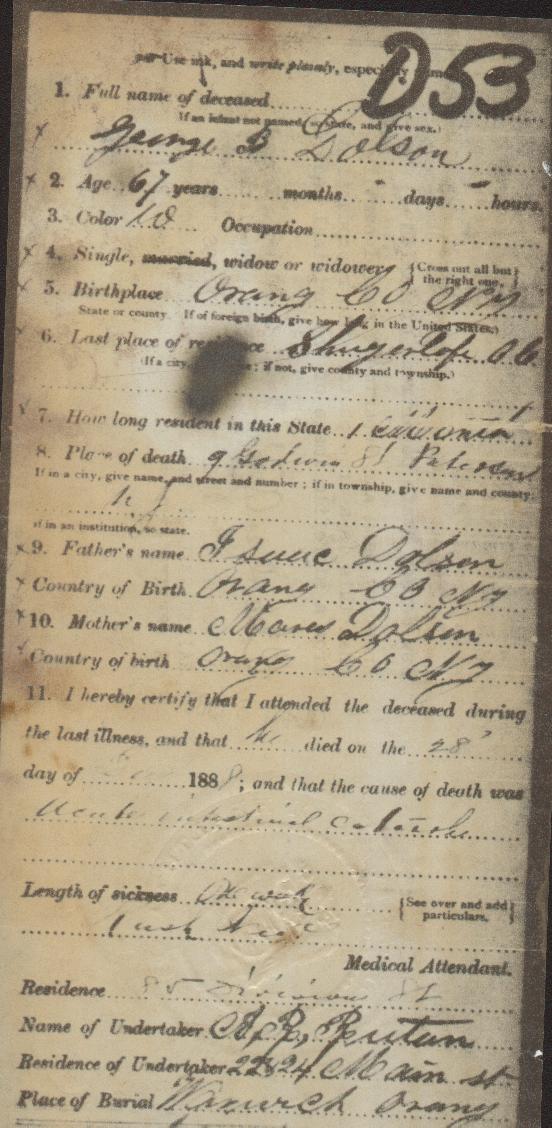 Use ink, and write plainly, especially
D53
1. Full name of deceased
If an infant not named, so state, and give sex.)
George B Dolson
2. Age 67 years months - days - hours.
3. Color W Occupation
4. Single, married, widow or widower {Cross out all but the right one.}
5. Birthplace Orang Co Ny
State or county. If of foreign birth, give how long in the United States.)
6. Last place of residence
(If a city, ; if not, give county and township.)
7. How long resident in this State 1
8. Place of death 9 Godwin St Paterson
If in a city, give name, and street and number; if in township, give name and county;
N J
if in an institution, so state.
9. Father's name Isaac Dolson
Country of Birth Orang Co Ny
10. Mother's name Dolson
Country of birth Orang Co Ny
11. I hereby certify that I attended the deceased during
the last illness, and that he died on the 28
day of 1888; and that the cause of death was
Acute intestinal
Length of sickness One week {See over and add particulars.}
Medical Attendant.
Residence 85 Division St
Name of Undertaker
Residence of Undertaker Main st
Place of Burial Orang